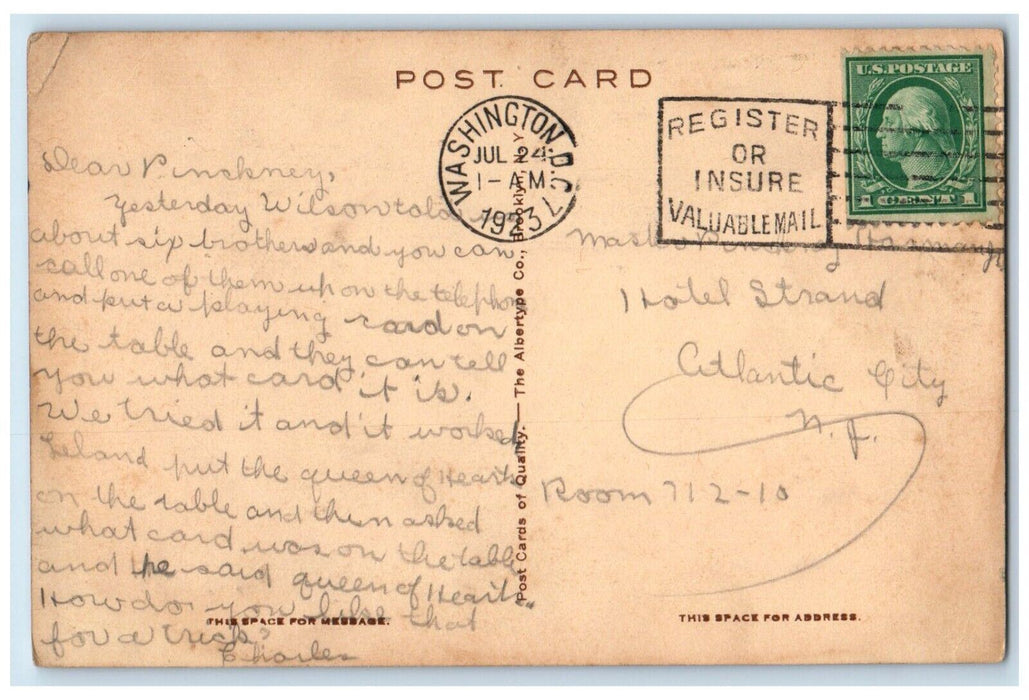 POST CARD
WASHINGTON, D.C.
JUL 24
1-AM
1923
REGISTER
OR
INSURE
VALUABLE MAIL
U.S. POSTAGE
Dear Pinckney,
Yesterday Wilson told
about six brothers and you can
call one of them up on the telephone
and put a playing card on
the table and they can tell
you what card it is.
We tried it and it worked
Leland put the queen of Hearts
on the table and then asked
what card was on the table
and he said queen of Hearts"
How do you like that
for a trick?
Charles
THIS SPACE FOR MESSAGE.
Post Cards of Quality. — The Albertype Co., Brooklyn, N.Y.
Master
Hotel Strand
Atlantic City
N.J.
Room 712-10
THIS SPACE FOR ADDRESS.